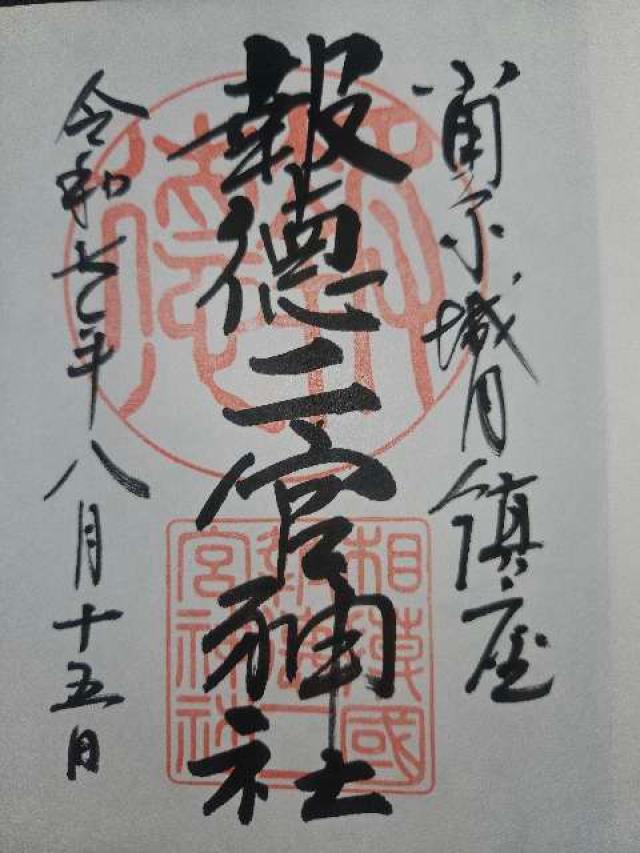 小田原城内鎮座
報徳二宮神社
令和七年八月十五日
報徳
相模國
報徳二
宮神社